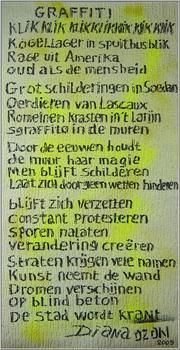 GRAFFITI
KLIK KLIK KLIK KLIK KLIK KLIK KLIK
Kogellager in spuitbusblik
Rage uit Amerika
oud als de mensheid
Grotschilderingen in Soedan
Oerdieren van Lascaux
Romeinen krasten in 't Latijn
sgraffito in de muren
Door de eeuwen houdt
de muur haar magie
Men blijft schilderen
Laat zich door geen wetten hinderen
blijft zich verzetten
Constant Protesteren
Sporen nalaten
Verandering creëren
Straten krijgen vele namen
Kunst neemt de wand
Dromen verschijnen
op blind beton
De stad wordt krant
Diana OZON
2005